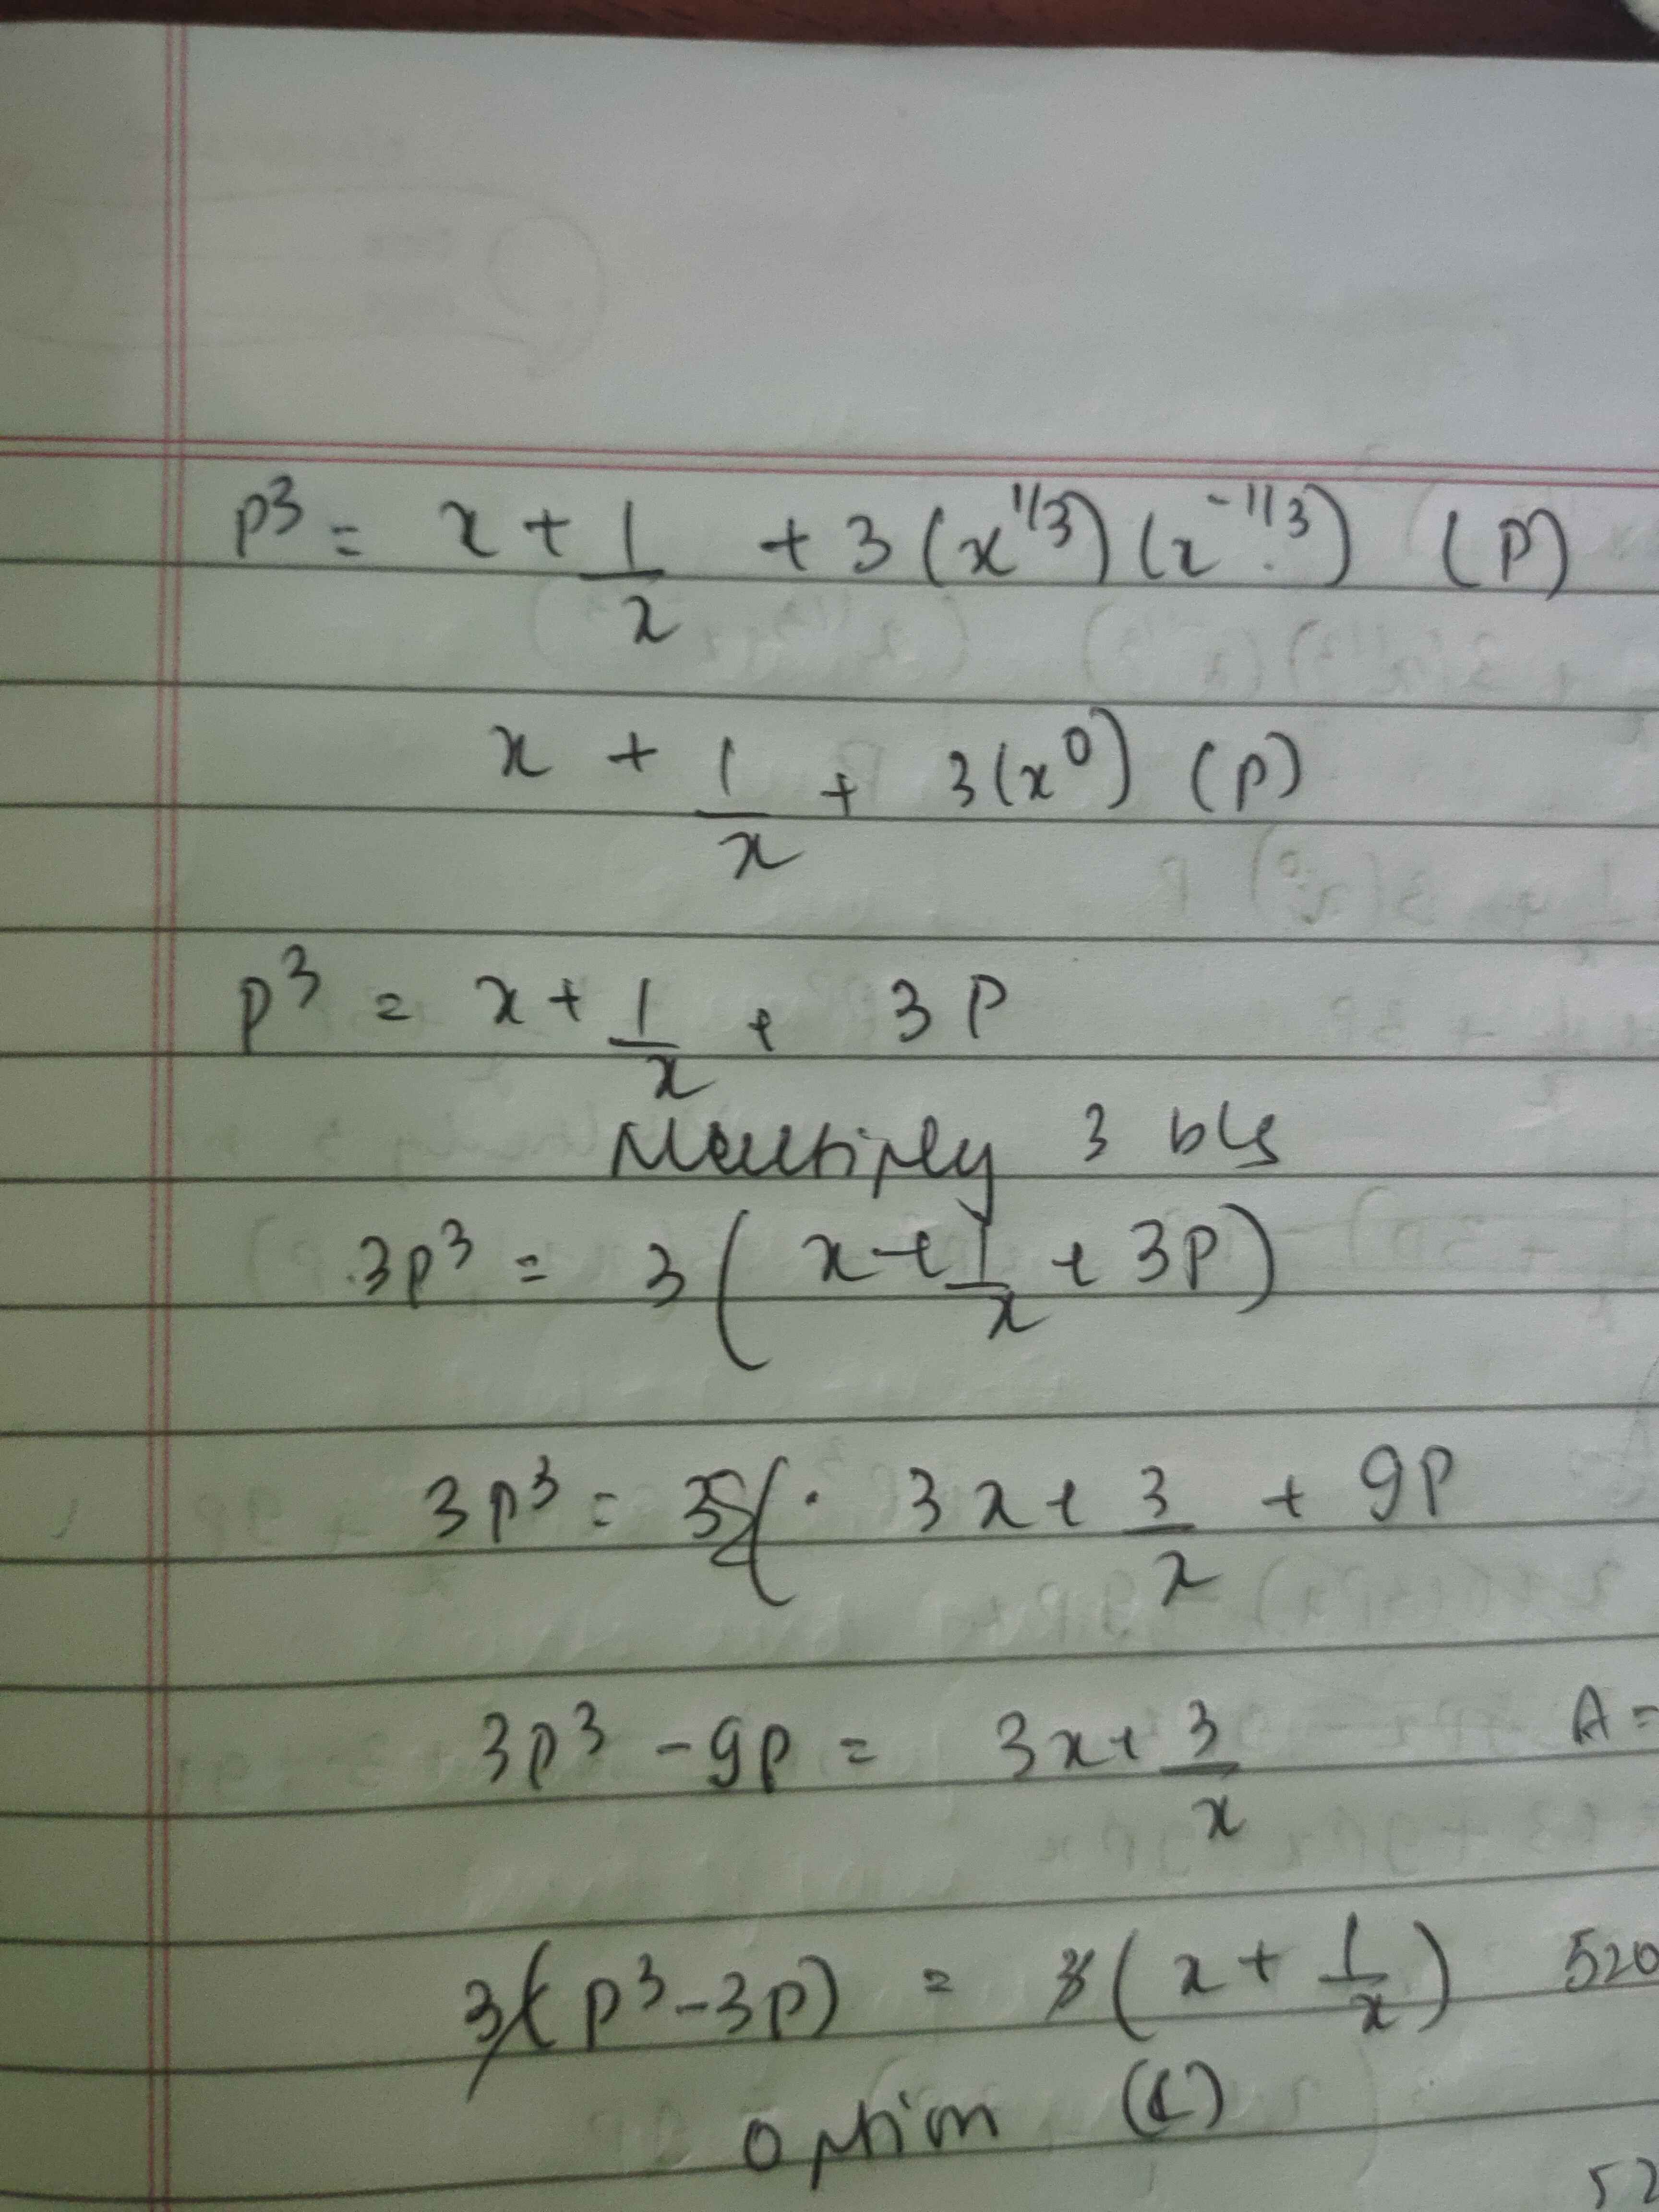 p³ = x + 1/x + 3(x^1/3)(x^-1/3) (P)
x + 1/x + 3(x⁰) (P)
p³ = x + 1/x + 3P
Multiply 3 b/s
3p³ = 3(x + 1/x + 3P)
3p³ = 3x + 3/x + 9P
3p³ - 9p = 3x + 3/x A =
3(p³ - 3p) = 3(x + 1/x) 520
option (C)
52